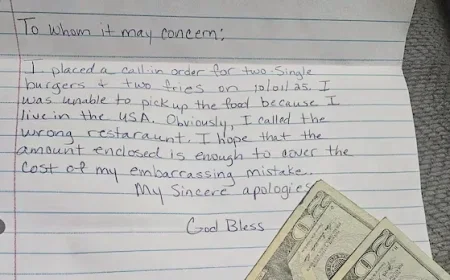 To whom it may concern:
I placed a call-in order for two single
burgers & two fries on 10/01/25. I
was unable to pick up the food because I
live in the USA. Obviously, I called the
wrong restaraunt. I hope that the
amount enclosed is enough to cover the
cost of my embarrassing mistake.
My Sincere apologies
God Bless